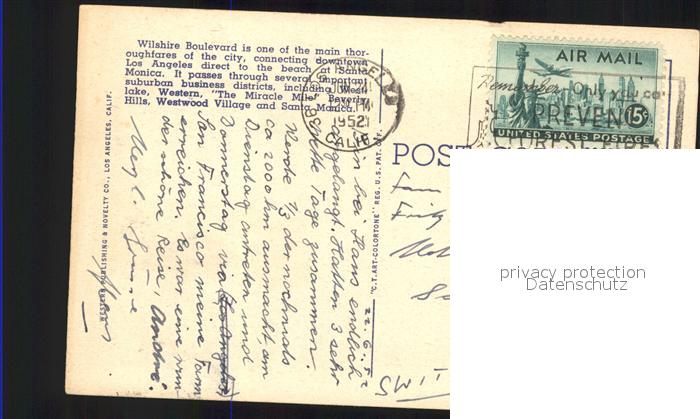 Wilshire Boulevard is one of the main thor-
oughfares of the city, connecting downtown
Los Angeles direct to the beach at Santa
Monica. It passes through several important
suburban business districts, including West-
lake, Western, "The Miracle Mile" Beverly
Hills, Westwood Village and Santa Monica.
1952
CALIF.
AIR MAIL
Remember Only you ca
PREVENT
15¢
UNITED STATES POSTAGE
POST
22.6.52
bin bei Hans endlich
angelangt. Hatten 3 sehr
nette Tage zusammen.
Werde 1/3 der nochmals
ca 2000 km ausmacht, am
Dienstag antreten und
Donnerstag via Los Angeles
San Francisco meine Farm
erreichen. Es war eine wun-
der schöne Reise, André.
"C.T. ART-COLORTONE" REG. U.S. PAT. OFF.
WESTERN PUBLISHING & NOVELTY CO., LOS ANGELES, CALIF.
privacy protection
Datenschutz